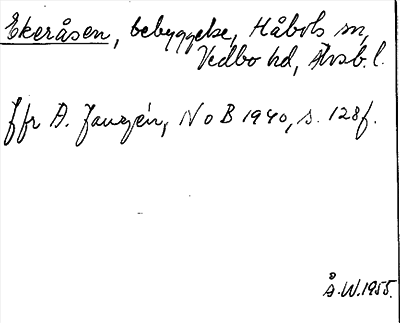 Ekeråsen, bebyggelse, Håbols sn,
Vedbo hd, Älvsb. l.
Jfr A. Janzén, NoB 1940, s. 128f.
Å.W. 1955.